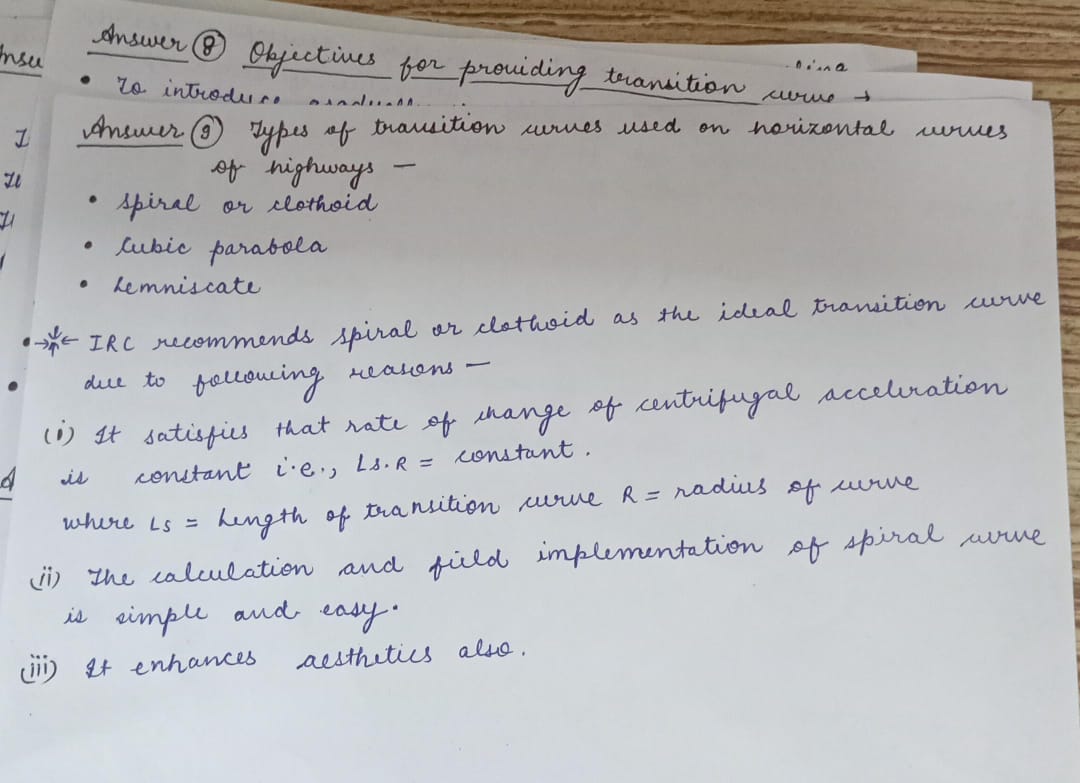 Answer 8 Objectives for providing transition curve →
• To introduce
Answer 9 Types of transition curves used on horizontal curves
of highways —
• spiral or clothoid
• Cubic parabola
• Lemniscate
IRC recommends spiral or clothoid as the ideal transition curve
due to following reasons —
(i) It satisfies that rate of change of centrifugal acceleration
is constant i.e., Ls.R = constant.
where Ls = Length of transition curve R = radius of curve
(ii) The calculation and field implementation of spiral curve
is simple and easy.
(iii) It enhances aesthetics also.